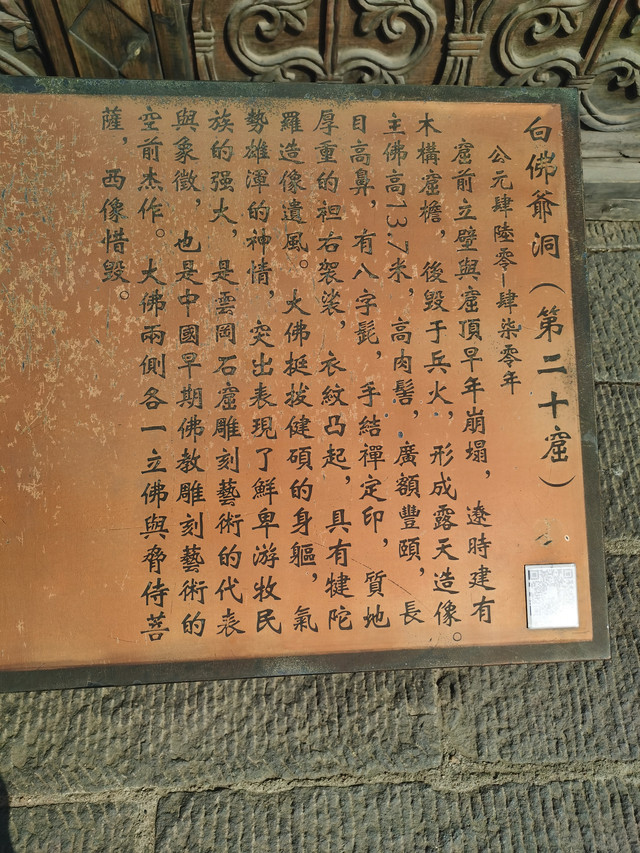 白佛爺洞（第二十窟）
公元肆陸零-肆柒零年
窟前立壁與窟頂早年崩塌，遼時建有
木構窟檐，後毀于兵火，形成露天造像。
主佛高13.7米，高肉髻，廣額豐頤，長
目高鼻，有八字髭，手結禪定印，質地
厚重的袒右袈裟，衣紋凸起，具有犍陀
羅造像遺風。大佛挺拔健碩的身軀，氣
勢雄渾的神情，突出表現了鮮卑游牧民
族的强大，是雲岡石窟雕刻藝術的代表
與象徵，也是中國早期佛教雕刻藝術的
空前杰作。大佛兩側各一立佛與脅侍菩
薩，西像惜毀。